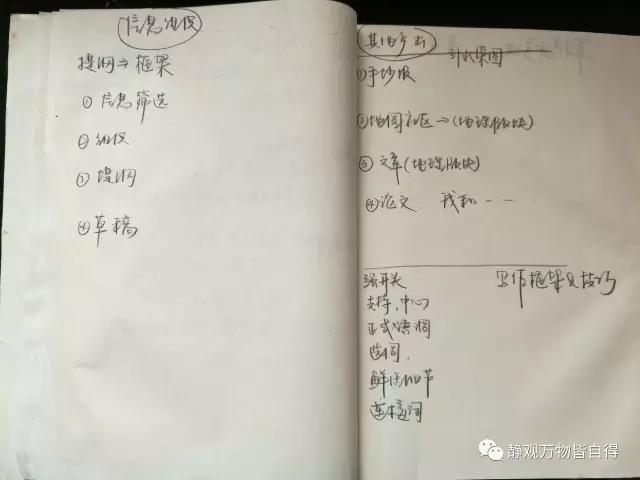 信息组织
提纲⇒框架
①信息筛选
②组织
③提纲
④草稿
其他产出
①手抄报
②地图社区→(地理版块)
③文章(地理版块)
④论文 我和--
写作框架及技巧
强开头
支持,中心
正式语调
选词.
鲜活细节
连接词
静观万物皆自得